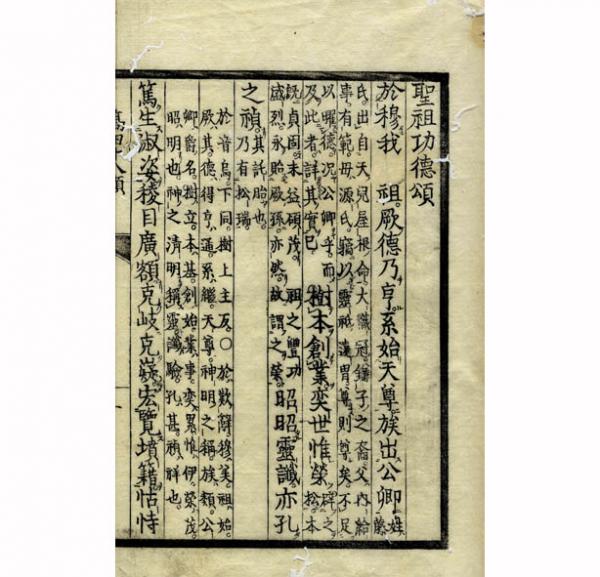 聖祖功德頌
於穆我 祖厥德乃亨系始天尊族出公卿姓藤
氏出自天兒屋根命大織冠鎌子之裔父內給
事有範母源氏竊以靈祇遠胄尊則尊矣不足
以曜德况公卿乎而
及此者詳其實已
樹本創業奕世惟榮辟之松本
既貞固末益碩茂 祖之豐功
盛烈永貽厥孫亦然故謂之榮
昭昭靈讖亦孔
之禎其託胎也乃有松瑞
於音烏下同樹上主反〇於數辭穆美祖始
厥其德得亨通系繼天尊神明之稱族類公
卿爵名樹立本基創始業事奕累惟伊榮茂
昭明也神之清明稱靈讖驗孔甚禎祥也
篤生淑姿稜目廣額克岐克嶷宏覽墳籍怙恃